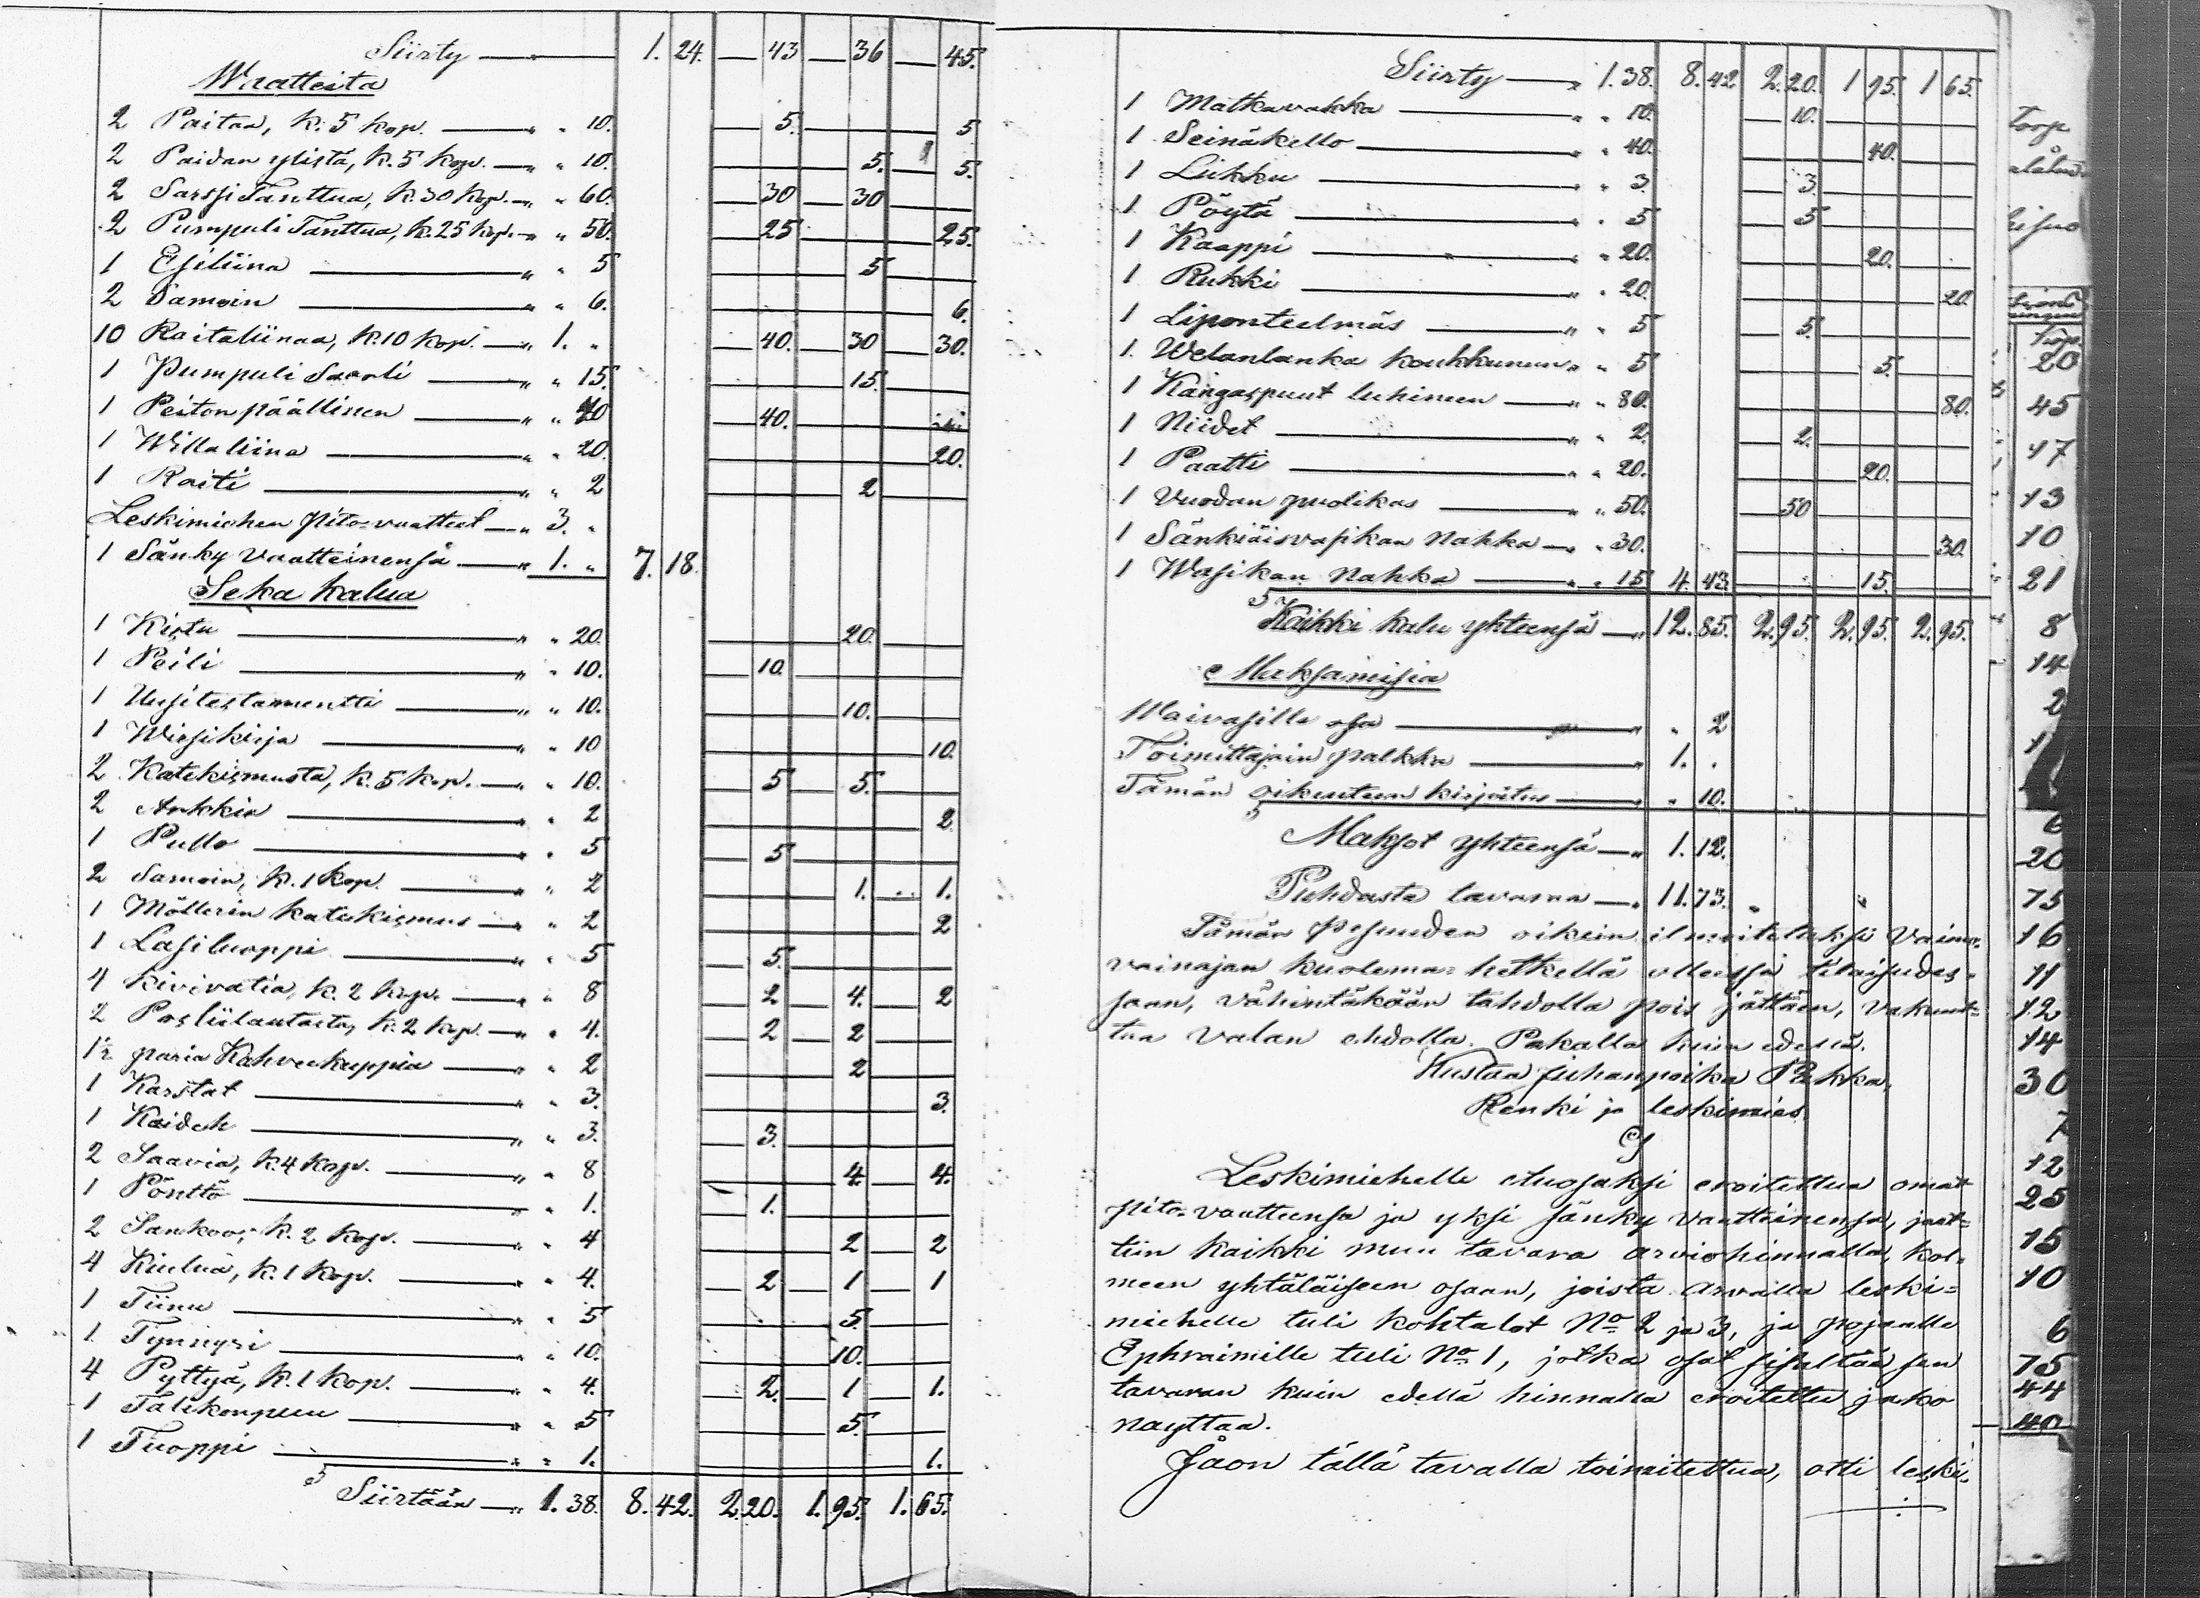 Siirty — 1. 24. 43 36 45.
Waatteita
2 Paitaa, k. 5 kop. — " " 10. 5. 5
2 Paidan ylistä, k. 5 kop. — " " 10. 5. 5.
2 Sarssi Tanttua, k. 30 kop. — " " 60. 30 30
2 Pumpuli Tanttua, k. 25 kop. — " " 50. 25 25.
1 Esiliina — " " 5 5
2 Samoin — " " 6. 6.
10 Raitaliinaa, k. 10 kop. — " 1. " 40. 30 30.
1 Pumpuli Saali — " " 15. 15.
1 Peiton päällinen — " " 40 40.
1 Willaliina — " " 20. 20.
1 Raiti — " " 2 2
Leskimiehen pito-vaatteet — " 3. "
1 Sänky vaatteinensa — " 1. " 7. 18.
Seka kalua
1 Kistu — " " 20. 20.
1 Peili — " " 10. 10.
1 Uusitestamentti — " " 10. 10.
1 Wirsikirja — " " 10 10.
2 Katekismusta, k. 5 kop. — " " 10. 5 5.
2 Ankkia — " " 2 2.
1 Pullo — " " 5 5
2 Samoin, k. 1 kop. — " " 2 1. 1.
1 Möllerin katekismus — " " 2 2
1 Lasiluoppi — " " 5 5.
4 Kivivatia, k. 2 kop. — " " 8 2 4. 2
2 Posliilautasta, k. 2 kop. — " " 4. 2 2
1½ paria Kahveekuppia — " " 2 2
1 Karstat — " " 3. 3.
1 Kaideh — " " 3. 3.
2 Saavia, k. 4 kop. — " " 8 4. 4.
1 Pönttö — " " 1. 1.
2 Sankoo, k. 2 kop. — " " 4 2 2
4 Kiulua, k. 1 kop. — " " 4. 2 1 1
1 Tiinu — " " 5 5.
1 Tynnyri — " " 10. 10.
4 Pyttyä, k. 1 kop. — " " 4. 2. 1 1.
1 Talikonpuu — " " 5 5.
1 Tuoppi — " " 1. 1.
Siirtään — " 1. 38. 8. 42. 2.20. 1. 95. 1. 65.
Siirty — " 1. 38. 8. 42 2. 20. 1 95. 1 65.
1 Matkavakka — " " 10. 10.
1 Seinäkello — " " 40. 40.
1 Liikku — " " 3 3
1 Pöytä — " " 5 5
1 Kaappi — " " 20. 20.
1 Rukki — " " 20. 20.
1 Liponteelmäs — " " 5 5.
1. Welanlanka koukkunun " " 5 5.
1 Kangaspuut luhineen — " " 80. 80.
1 Niidet — " " 2. 2.
1 Paatti — " " 20. 20.
1 Vuodan puolikas — " " 50. 50
1 Sänkiäisvasikan Nahka — " " 30. 30.
1 Wasikan Nahka — " " 15 4. 43. 15.
Kaikki kalu yhteensä — " 12. 85. 2. 95. 2. 95. 2. 95.
Maksamisia
Waivasille osa — " " 2
Toimittajain palkka — " 1. "
Tämän oikeuteen kirjoitus — " " 10.
Maksot yhteensä — " 1. 12.
Puhdasta tavaraa — " 11. 73.
Tämän pesuuden oikein ilmoitetuksi Vaimo-
vainajan kuolema-hetkellä olleissa tilaisuudes-
saan, vähintäkään tahdolla pois jättäen, vakuut-
taa valan ehdolla. Paikalla kuin edellä.
Kustaa Juhanpoika Pukka,
Renki ja leskimies.
Leskimiehelle etuosaksi eroitettua omat
pito-vaatteensa ja yksi sänky vaatteinensa, jaet-
tiin kaikki muu tavara arviohinnalla, kol-
meen yhtäläiseen osaan, joista arvalla leski-
miehelle tuli kohtalot No 2 ja 3, ja pojalle
Ephraimille tuli No 1, jotka osat sisältää sen
tavaran kuin edellä hinnalla eroitettu jako
nayttaa.
Jaon tällä tavalla toimitettua, otti leski-
20
45
17
13
10
21
8
14
2
6
20
75
16
11
12
14
30
7
12
25
15
10
6
75
44
40